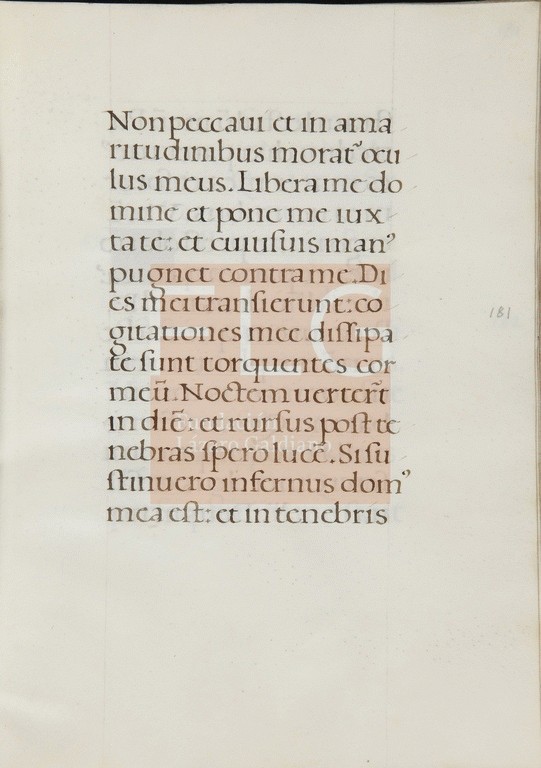 Non peccaui et in ama
ritudinibus morat᷒ ocu
lus meus. Libera me do
mine et pone me iux
ta te: et cuiuſuis man᷒
pugnet contra me. Di
es mei tranſierunt: co
gitationes mee diſſipa
te ſunt torquentes cor
meū. Noctem uerterūt
in diē: et rurſus poſt te
nebras ſpero lucē. Si ſu
ſtinuero infernus dom᷒
mea eſt: et in tenebris
181
FLG
Fundación
Lázaro Galdiano